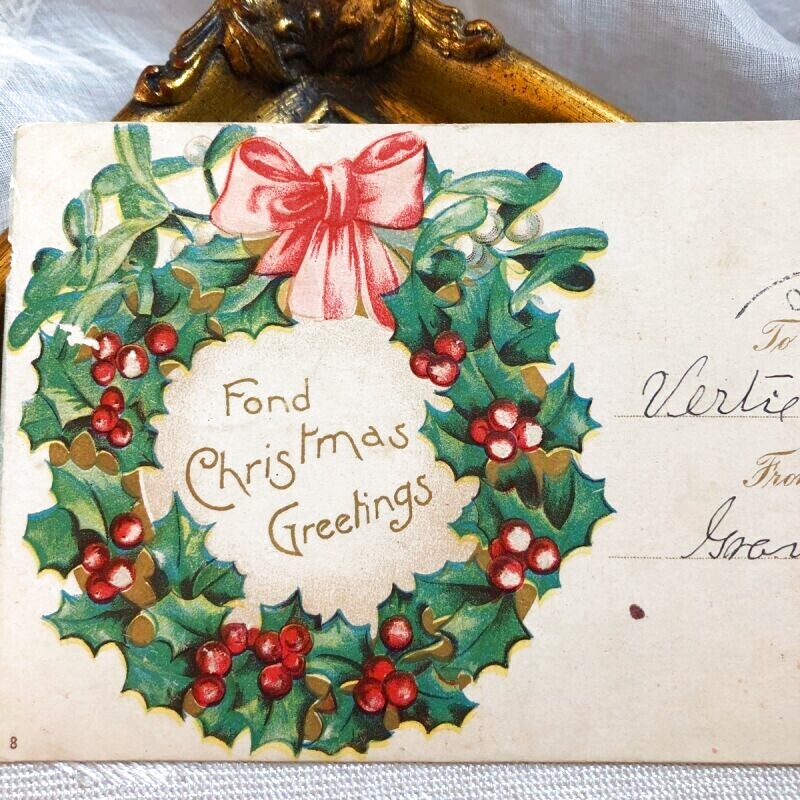 Fond
Christmas
Greetings
To
Vertie
8